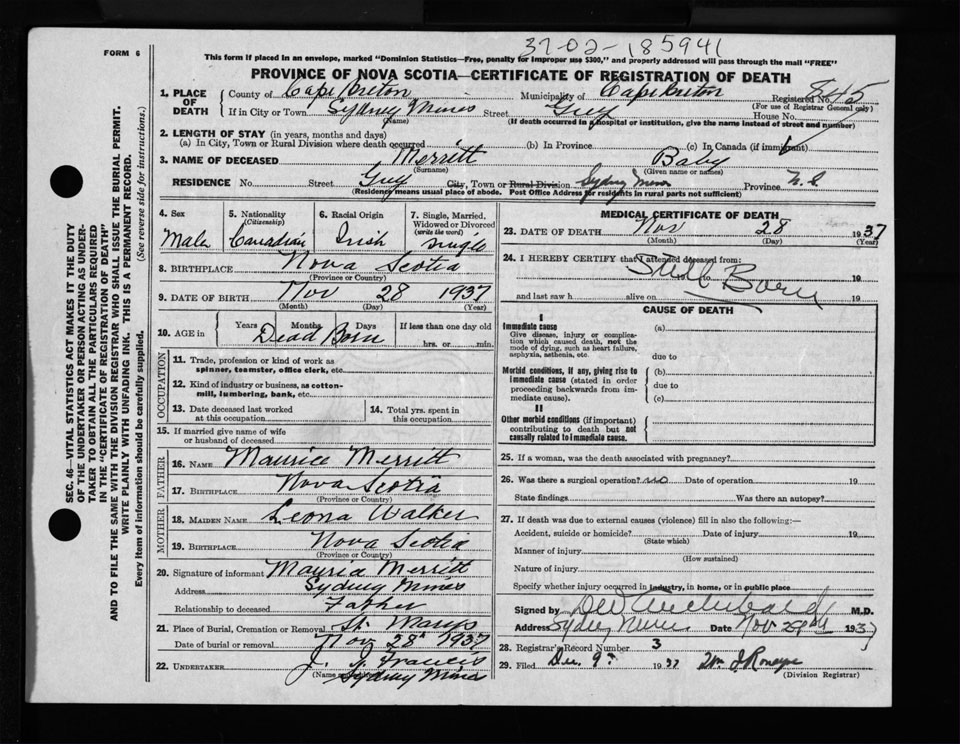 37-02-185941
FORM 6
This form if placed in an envelope, marked "Dominion Statistics—Free, penalty for improper use $300," and properly addressed will pass through the mail "FREE"
PROVINCE OF NOVA SCOTIA—CERTIFICATE OF REGISTRATION OF DEATH
1. PLACE OF DEATH
County of Cape Breton Municipality of Cape Breton Registered No. 845
(For use of Registrar General only)
If in City or Town Sydney Mines Street House No.
(Name)
(If death occurred in a hospital or institution, give the name instead of street and number)
2. LENGTH OF STAY (in years, months and days)
(a) In City, Town or Rural Division where death occurred (b) In Province (c) In Canada (if immigrant)
3. NAME OF DECEASED Merritt Baby
(Surname) (Given name or names)
RESIDENCE No. Street City, Town or Rural Division Sydney Mines Province N.S.
(Residence means usual place of abode. Post Office Address for residents in rural parts not sufficient)
4. Sex Male
5. Nationality (Citizenship) Canadian
6. Racial Origin Irish
7. Single, Married, Widowed or Divorced (write the word) single
8. BIRTHPLACE Nova Scotia
(Province or Country)
9. DATE OF BIRTH Nov 28 1937
(Month) (Day) (Year)
10. AGE in Years Months Days If less than one day old
Dead Born hrs. or min.
OCCUPATION
11. Trade, profession or kind of work as spinner, teamster, office clerk, etc.
12. Kind of industry or business, as cotton-mill, lumbering, bank, etc.
13. Date deceased last worked at this occupation
14. Total yrs. spent in this occupation
15. If married give name of wife or husband of deceased
FATHER
16. NAME Maurice Merritt
17. BIRTHPLACE Nova Scotia
(Province or Country)
MOTHER
18. MAIDEN NAME Leona Walker
19. BIRTHPLACE Nova Scotia
(Province or Country)
20. Signature of informant Mauria Merritt
Address Sydney Mines
Relationship to deceased Father
21. Place of Burial, Cremation or Removal St. Marys
Date of burial or removal Nov 28 1937
22. UNDERTAKER J. J. Francis
Sydney Mines
MEDICAL CERTIFICATE OF DEATH
23. DATE OF DEATH Nov 28 1937
(Month) (Day) (Year)
24. I HEREBY CERTIFY that I attended deceased from:
Still Born
to 19
and last saw h alive on 19
CAUSE OF DEATH
I
Immediate cause (a)
Give disease, injury or complication which caused death, not the mode of dying, such as heart failure, asphyxia, asthenia, etc.
due to
Morbid conditions, if any, giving rise to immediate cause (stated in order proceeding backwards from immediate cause). (b)
due to
(c)
II
Other morbid conditions (if important) contributing to death but not causally related to immediate cause.
25. If a woman, was the death associated with pregnancy?
26. Was there a surgical operation? no Date of operation 19
State findings Was there an autopsy?
27. If death was due to external causes (violence) fill in also the following:—
Accident, suicide or homicide? Date of injury 19
(State which)
Manner of injury
(How sustained)
Nature of injury
Specify whether injury occurred in industry, in home, or in public place
Signed by M.D.
Address Sydney Mines Date Nov 1937
28. Registrar's Record Number 3
29. Filed Dec. 9 1937
(Division Registrar)
SEC. 46—VITAL STATISTICS ACT MAKES IT THE DUTY
OF THE UNDERTAKER OR PERSON ACTING AS UNDER-
TAKER TO OBTAIN ALL THE PARTICULARS REQUIRED
IN THE "CERTIFICATE OF REGISTRATION OF DEATH"
AND TO FILE THE SAME WITH THE DIVISION REGISTRAR WHO SHALL ISSUE THE BURIAL PERMIT.
WRITE PLAINLY WITH UNFADING INK. THIS IS A PERMANENT RECORD.
Every item of information should be carefully supplied. (See reverse side for instructions.)